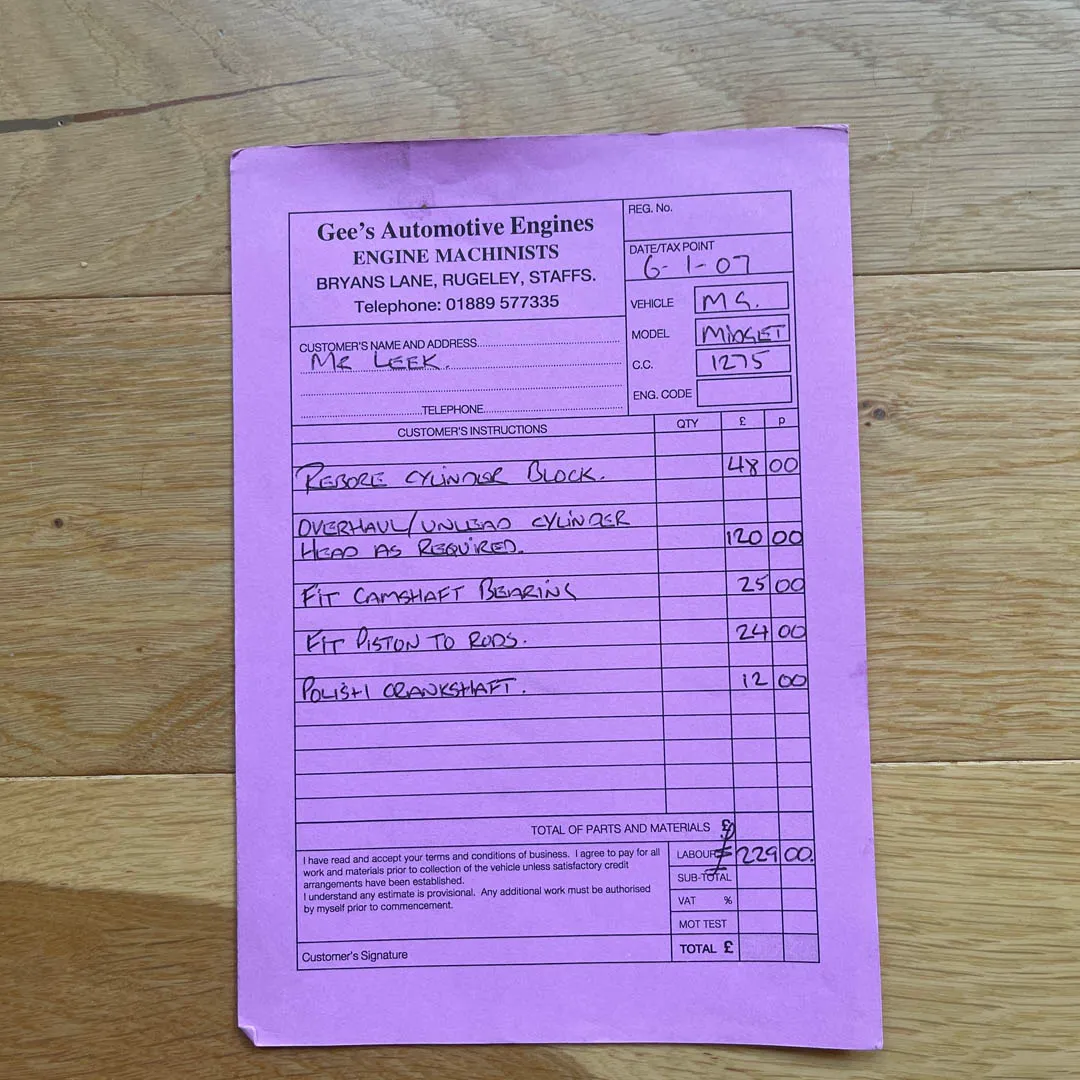 Gee's Automotive Engines
ENGINE MACHINISTS
BRYANS LANE, RUGELEY, STAFFS.
Telephone: 01889 577335
REG. No.
DATE/TAX POINT
6-1-07
VEHICLE MG.
MODEL MIDGET
C.C. 1275
ENG. CODE
CUSTOMER'S NAME AND ADDRESS
MR LEEK.
TELEPHONE
CUSTOMER'S INSTRUCTIONS QTY £ p
REBORE CYLINDER BLOCK. 48 00
OVERHAUL/UNLEAD CYLINDER
HEAD AS REQUIRED. 120 00
FIT CAMSHAFT BEARING 25 00
FIT PISTON TO RODS. 24 00
POLISH CRANKSHAFT. 12 00
TOTAL OF PARTS AND MATERIALS £
I have read and accept your terms and conditions of business. I agree to pay for all
work and materials prior to collection of the vehicle unless satisfactory credit
arrangements have been established.
I understand any estimate is provisional. Any additional work must be authorised
by myself prior to commencement.
Customer's Signature
LABOUR £ 229 00.
SUB-TOTAL
VAT %
MOT TEST
TOTAL £